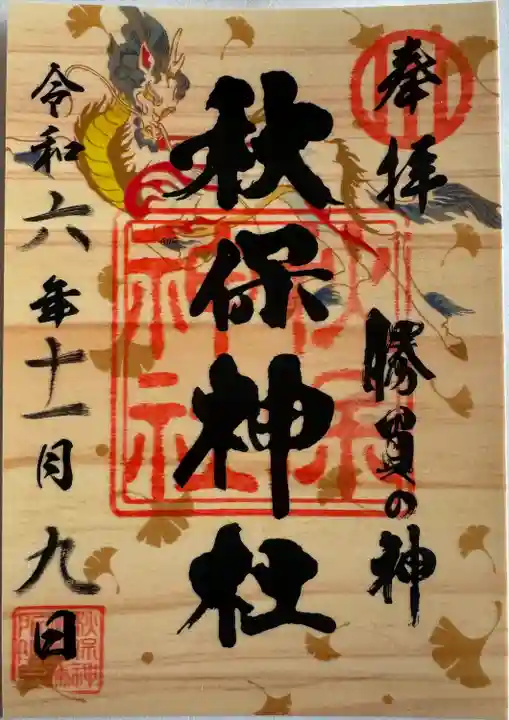 奉拝
勝負の神
秋保神社
秋保神社
令和六年十一月九日
秋保神